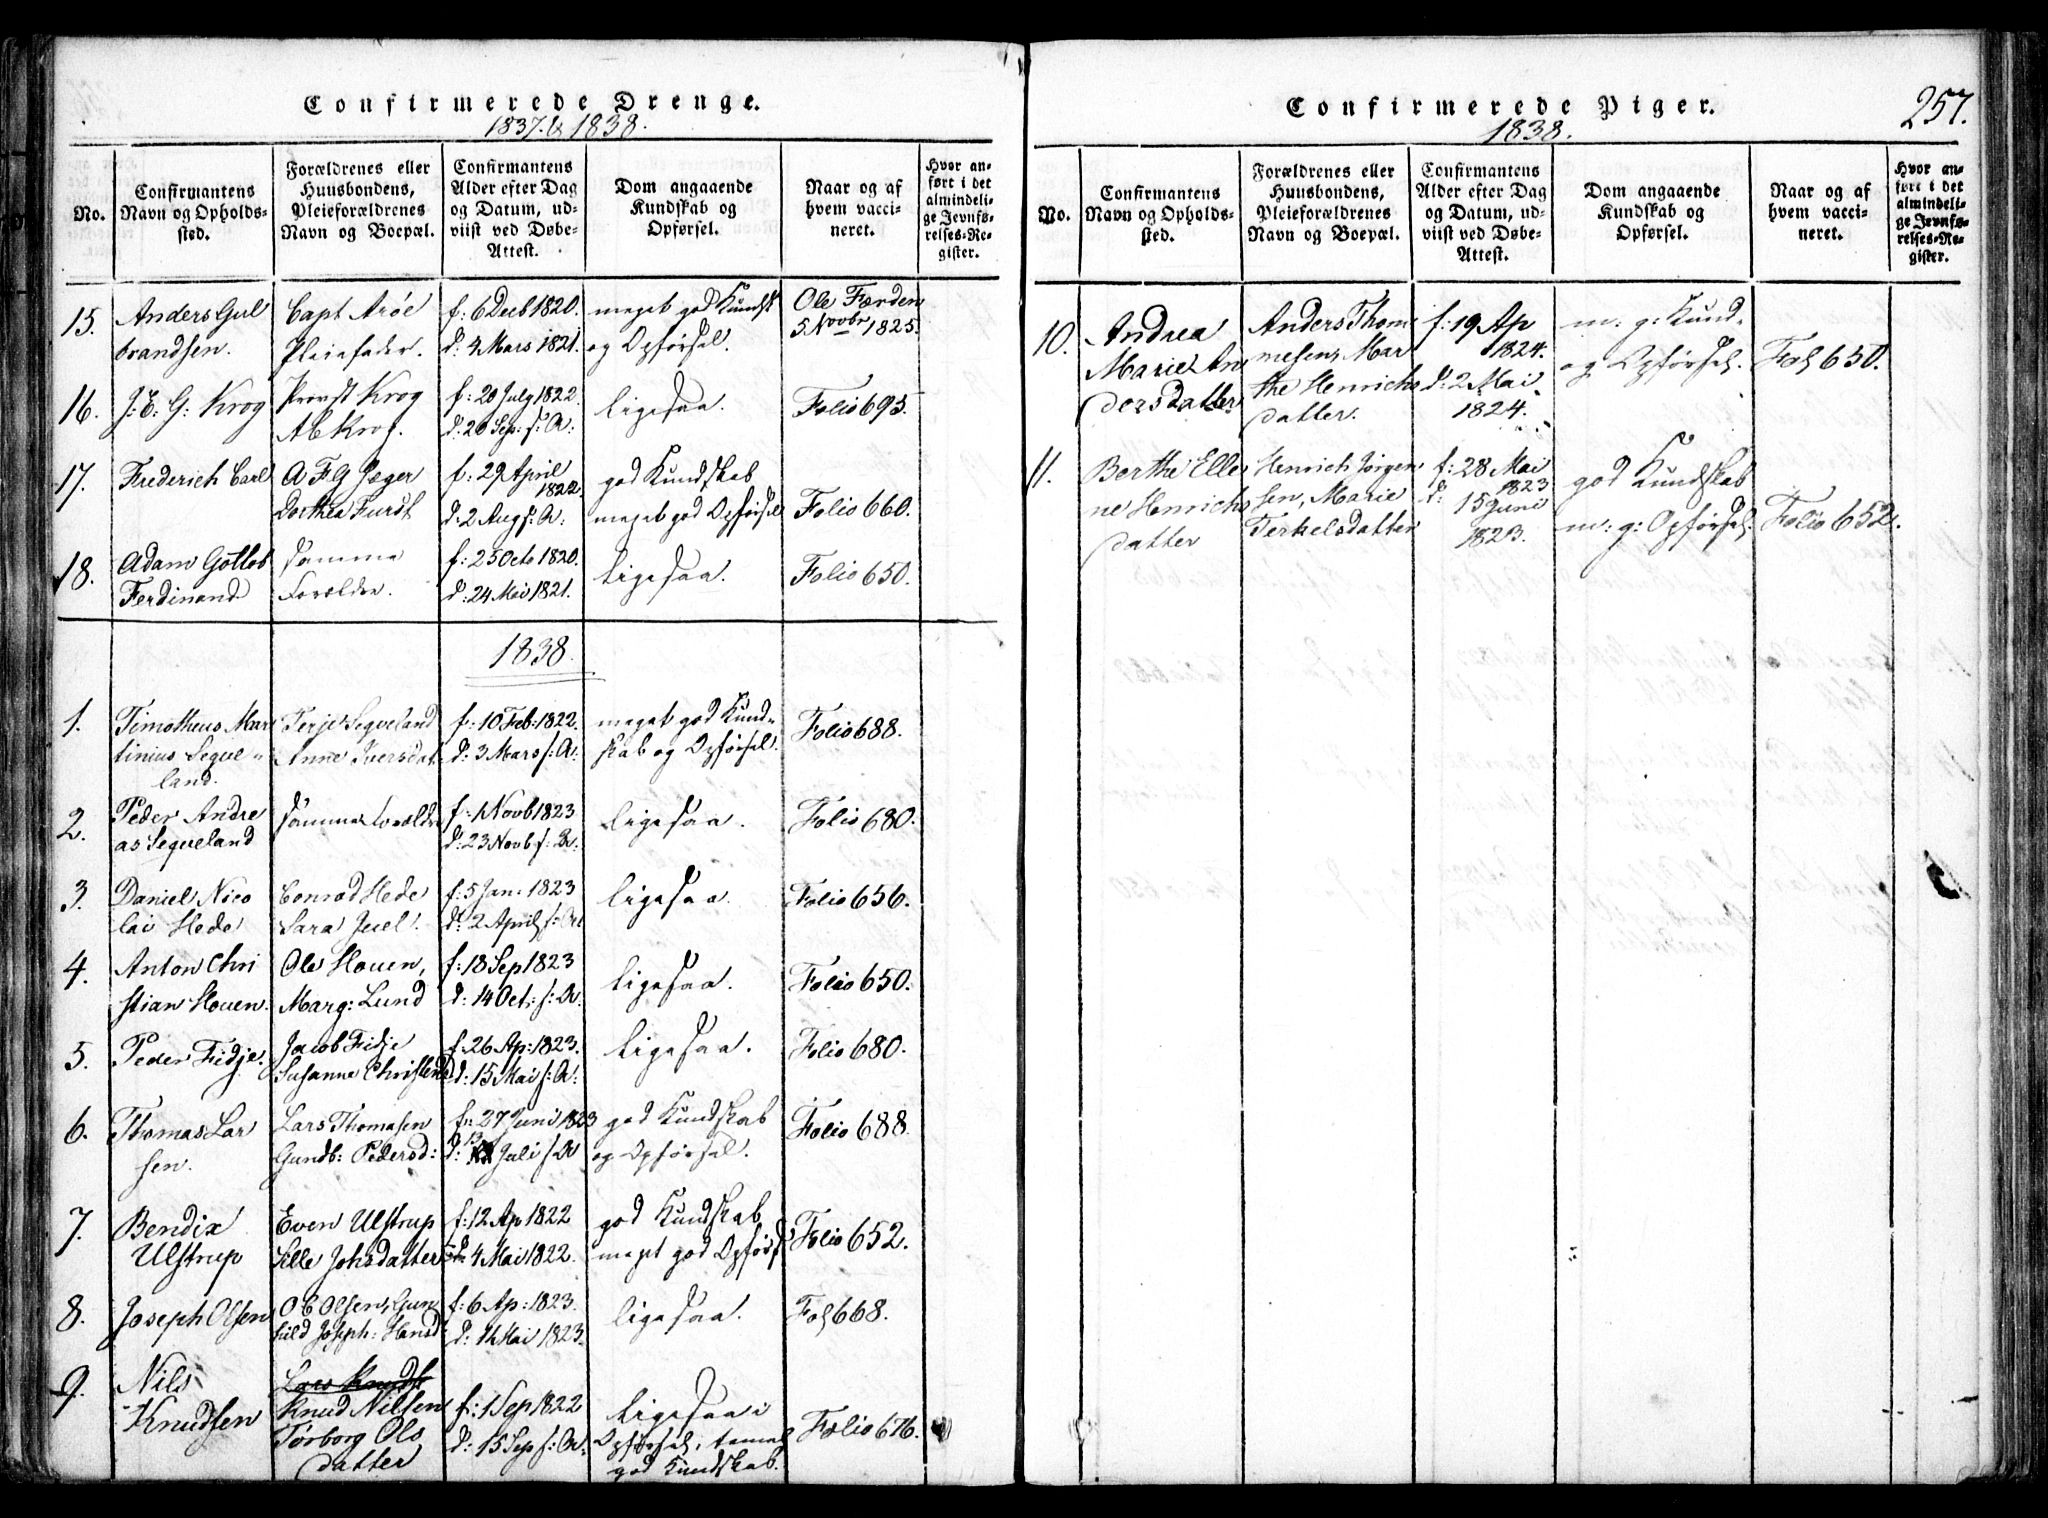 Confirmerede Drenge.
1837 & 1838.
No.
Confirmantens
Navn og Opholds-
sted.
Forældrenes eller
Huusbondens,
Pleieforældrenes
Navn og Boepæl.
Confirmantens
Alder efter Dag
og Datum, ud-
viist ved Døbe-
Attest.
Dom angaaende
Kundskab og
Opførsel.
Naar og af
hvem vacci-
neret.
Hvor an-
ført i det
almindeli-
ge Jevnfø-
relses-Re-
gister.
15.
Anders Gul
brandsen.
Capt Arøe
Pleiefader.
f: 6 Decb 1820.
d: 4 Mars 1821.
meget god Kundsk
og Opførsel.
Ole Førden
5 Novbr 1825.
16.
J: E: G: Krog
Provst Krog
A C Krog.
f: 20 July 1822.
d: 20 Sep: s: A:
ligesaa.
Folio 695.
17.
Frederich Carl
A F G Jæger
Dorthea Furst
f: 29 April
1822.
d: 2 Aug s: A:
god Kundskab
meget god Opførsel
Folio 660.
18.
Adam Gotlob
Ferdinand
samme
Forældre.
f: 25 Octo 1820.
d: 24 Mai 1821.
ligesaa.
Folio 650.
1838.
1.
Timotheus Mar
tinius Segve-
land.
Terje Segveland
Anne Iversdat.
f: 10 Feb: 1822.
d: 3 Mars s: A:
meget god Kund-
skab og Opførsel.
Folio 688.
2.
Peder Andre
as Segveland
samme Forældre
f: 1 Novb 1823
d: 23 Novb s: A:
ligesaa.
Folio 680.
3.
Daniel Nico
lai Hede
Conrad Hede
Sara Juel.
f: 5 Jan: 1823
d: 2 April s: A:
ligesaa.
Folio 656.
4.
Anton Chri
stian Houen.
Ole Houen,
Marg: Lund
f: 18 Sep 1823
d: 14 Oct: s: A:
ligesaa.
Folio 650.
5.
Peder Fidje.
Jacob Fidje
Susanne Christend
f: 26 Ap: 1823.
d: 15 Mai s: A:
ligesaa.
Folio 680.
6.
Thomas Lar
sen.
Lars Thomasen
Gundb: Pedersd:
f: 27 Juni 1823
d: 13 Juli s: A
god Kundskab
og Opførsel.
Folio 688.
7.
Bendix
Ulstrup
Even Ulstrup
Sille Johsdatter
f: 12 Ap 1822
d: 4 Mai 1822.
god Kundskab
meget god Opførsl
Folio 652.
8.
Joseph Olsen
O C Olsen, Gun
hild Joseph: Hansd
f: 6 Ap: 1823.
d: 11 Mai 1823.
ligesaa.
Fol 668.
9.
Nils
Knudsen
Knud Nilsen
Torborg Ols
datter
f: 1 Sep 1822
d: 15 Sep s: A:
ligesaa i
Opførsel,
god Kundskab.
Folio 676.
Confirmerede Piger.
1838.
257.
No.
Confirmantens
Navn og Opholds-
sted.
Forældrenes eller
Huusbondens,
Pleieforældrenes
Navn og Boepæl.
Confirmantens
Alder efter Dag
og Datum, ud-
viist ved Døbe-
Attest.
Dom angaaende
Kundskab og
Opførsel.
Naar og af
hvem vacci-
neret.
Hvor an-
ført i det
almindeli-
ge Jevnfø-
relses-Re-
gister.
10.
Andrea
Marie An
dersdatter
Anders Thom
mesen, Mar
the Henrichs
datter.
f: 19 Ap
1824.
d: 2 Mai
1824.
m: g: Kund-
og Opførsel.
Fol 650.
11.
Berthe Elle
ne Henrichs
datter
Henrich Jørgen
sen, Marie
Terkelsdatter
f: 28 Mai
1823
d: 15 Juni
1823.
god Kundskab
m: g: Opførsel.
Folio 652.